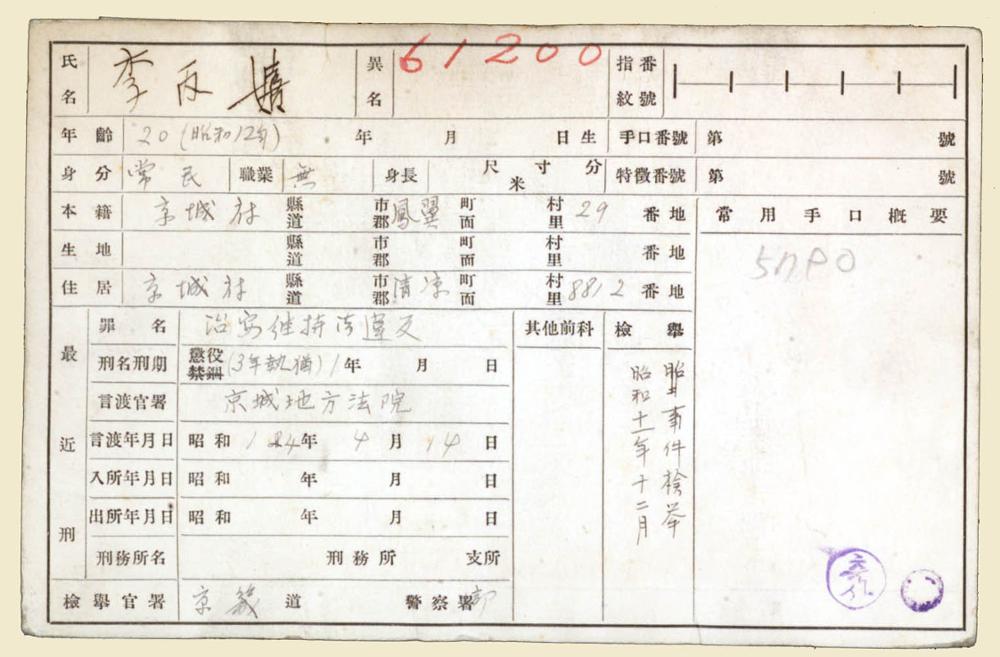 氏名 李 異名 61200 指紋番號
年齡 20 (昭和12年) 年 月 日生 手口番號 第 號
身分 常民 職業 無 身長 尺 寸 分 米 特徵番號 第 號
本籍 京城府 縣道 市郡 鳳翼 町面 村里 29 番地 常用手口概要
生地 縣道 市郡 町面 村里 番地
住居 京城府 縣道 市郡 清凉 町面 村里 番地
最近刑
罪名 治安維持法違反 其他前科 檢舉
刑名刑期 懲役 禁錮 (3年執猶) 1年 月 日
言渡官署 京城地方法院
言渡年月日 昭和 年 4月 14日
入所年月日 昭和 年 月 日
出所年月日 昭和 年 月 日
刑務所名 刑務所 支所
事件檢舉
昭和十一年十二月
檢舉官署 京畿道 警察署部